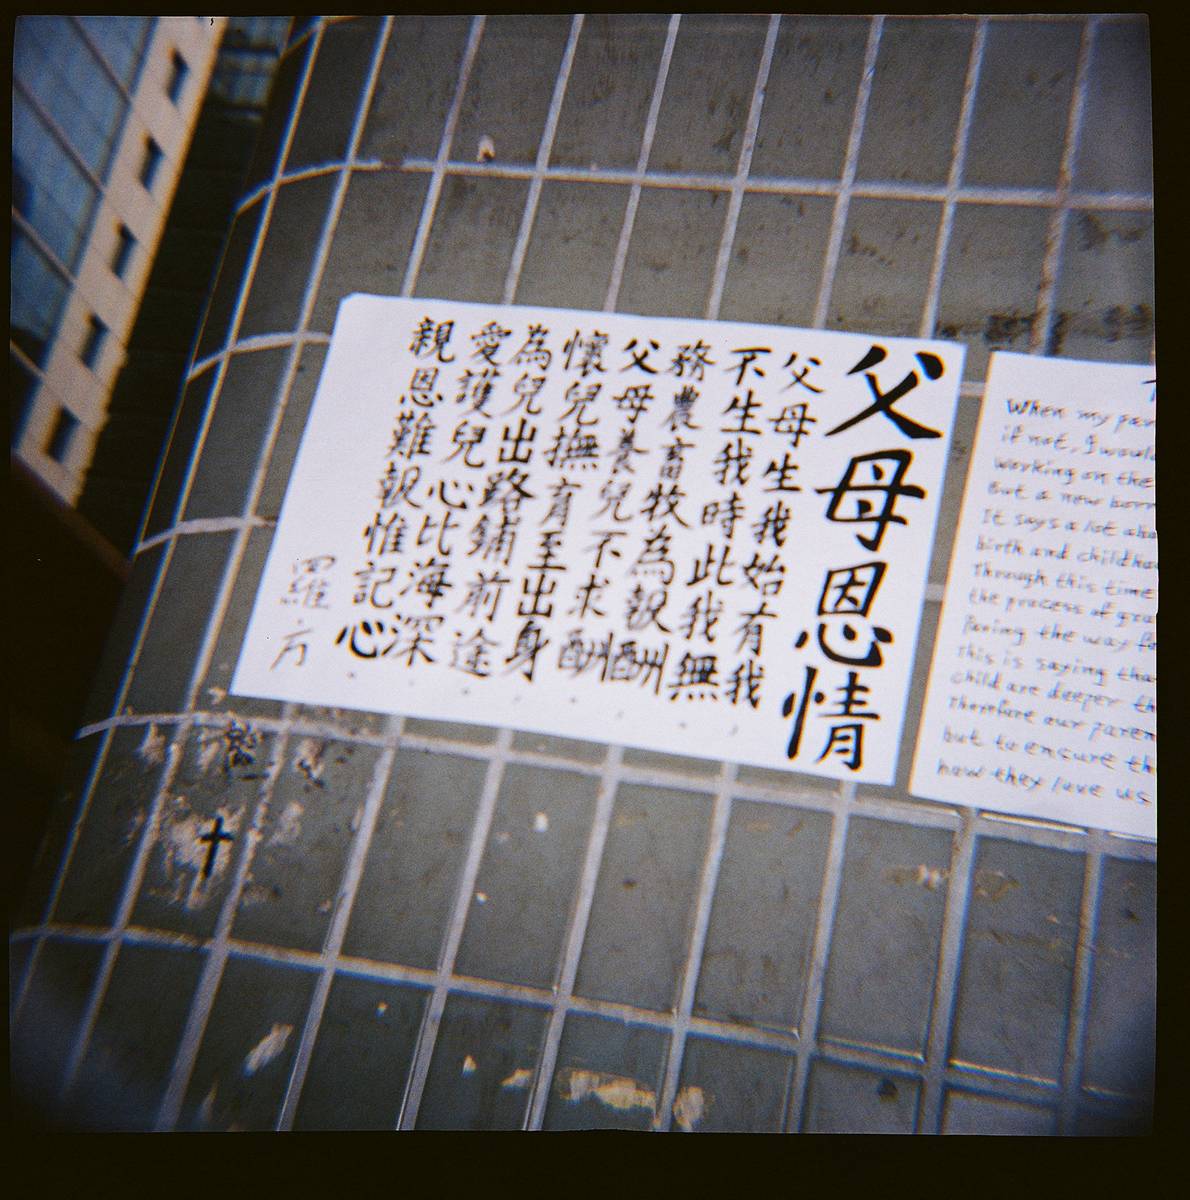 父母恩情
父母生我始有我
不生我時此我無
務農畜牧為報酬
父母養兒不求酬
懷兒撫育至出身
為兒出路鋪前途
愛護兒心比海深
親恩難報惟記心
When my par
if not, I woul
working on the
But a new born
It says a lot abo
birth and childho
Through this time
the process of gra
Paving the way fo
this is saying tha
child are deeper th
Therefore our paren
but to ensure th
how they love us